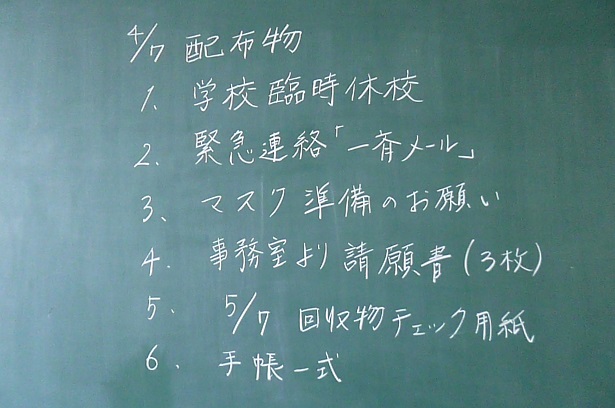 4/7 配布物
1. 学校臨時休校
2. 緊急連絡「一斉メール」
3、マスク準備のお願い
4. 事務室より請願書(3枚)
5. 5/7 回収物チェック用紙
6. 手帳一式